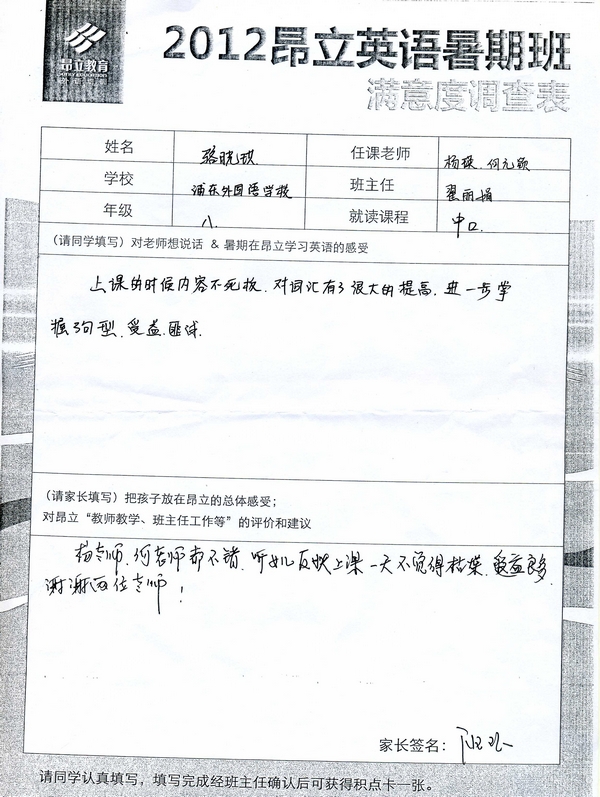 昂立教育
2012昂立英语暑期班
满意度调查表
姓名 骆晓琪 任课老师 杨瑛、何元颖
学校 浦东外国语学校 班主任 翟丽娟
年级 八 就读课程 中口
(请同学填写) 对老师想说话 & 暑期在昂立学习英语的感受
上课的时候内容不死板,对词汇有了很大的提高,进一步掌
握了句型,受益匪浅.
(请家长填写) 把孩子放在昂立的总体感受;
对昂立“教师教学、班主任工作等”的评价和建议
杨老师、何老师都不错,听女儿反映上课一天不觉得枯燥,受益良多,
谢谢两位老师!
家长签名:
请同学认真填写,填写完成经班主任确认后可获得积点卡一张。